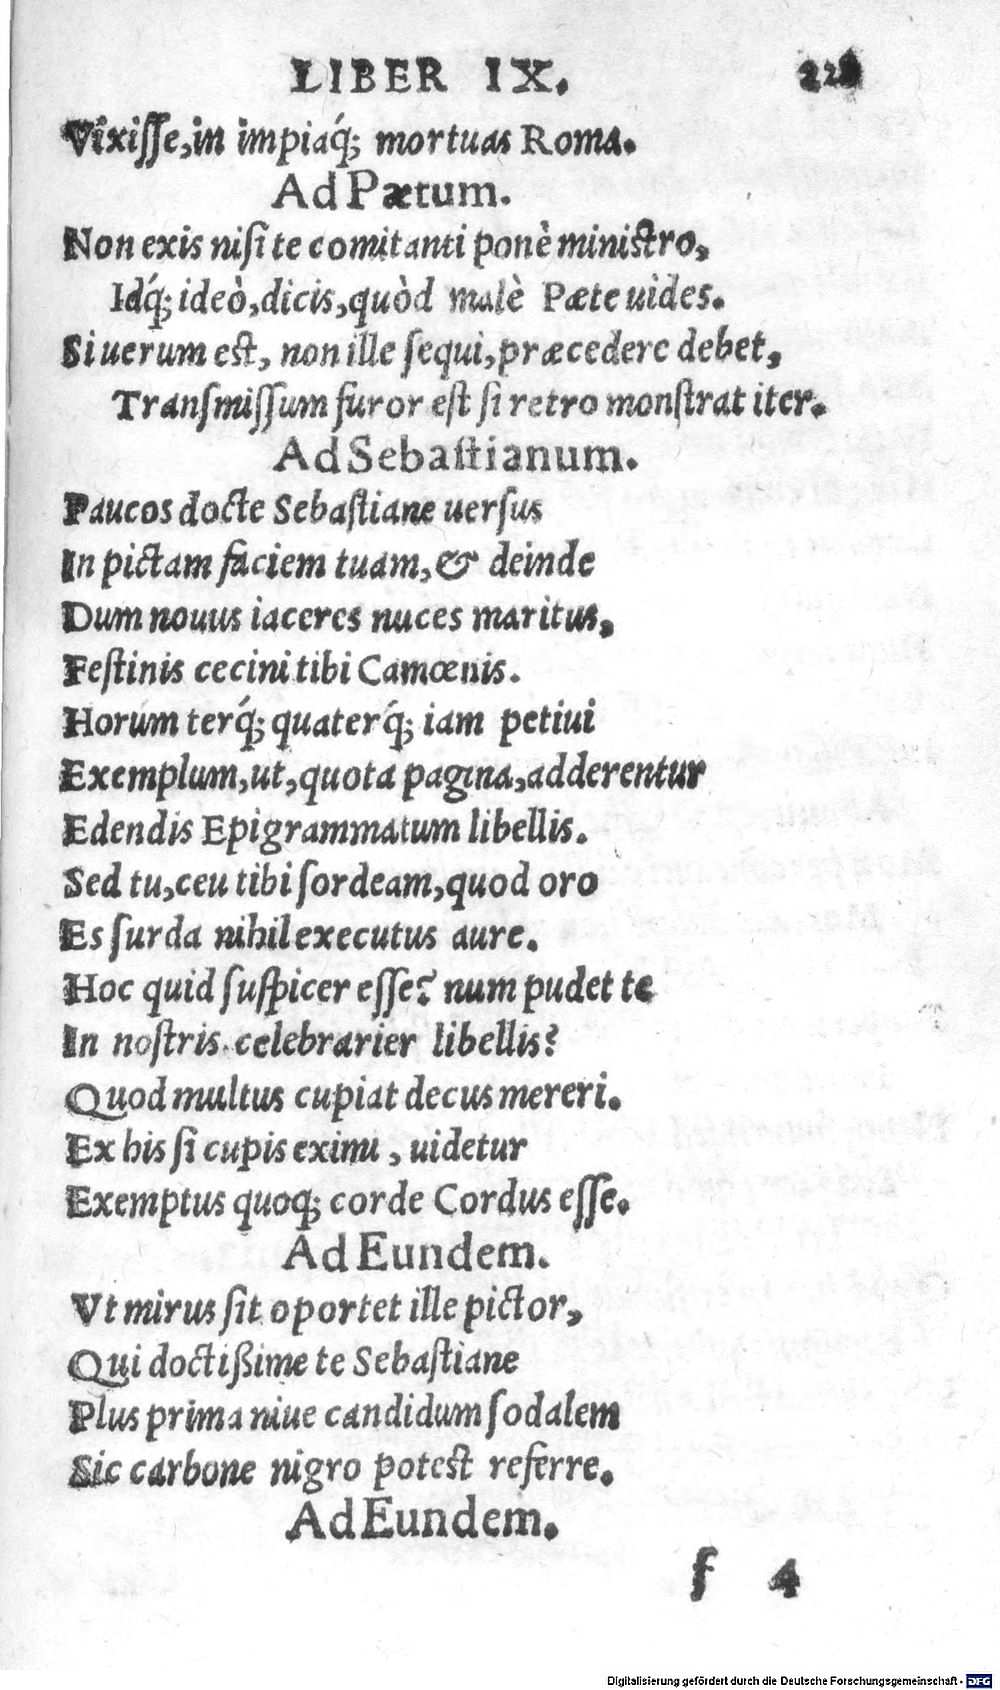 LIBER IX.
Vixiſſe, in impiaq́; mortuas Roma.
Ad Pætum.
Non exis niſi te comitanti ponè miniſtro,
Idq́; ideò, dicis, quòd malè Pæte uides.
Si uerum eſt, non ille ſequi, præcedere debet,
Tranſmiſſum furor eſt ſi retro monſtrat iter.
Ad Sebaſtianum.
Paucos docte Sebaſtiane uerſus
In pictam faciem tuam, & deinde
Dum nouus iaceres nuces maritus,
Feſtinis cecini tibi Camœnis.
Horum terq́; quaterq́; iam petiui
Exemplum, ut, quota pagina, adderentur
Edendis Epigrammatum libellis.
Sed tu, ceu tibi ſordeam, quod oro
Es ſurda nihil executus aure.
Hoc quid ſuſpicer eſſe? num pudet te
In noſtris celebrarier libellis?
Quod multus cupiat decus mereri.
Ex his ſi cupis eximi, uidetur
Exemptus quoq; corde Cordus eſſe.
Ad Eundem.
Vt mirus ſit oportet ille pictor,
Qui doctißime te Sebaſtiane
Plus prima niue candidum ſodalem
Sic carbone nigro poteſt referre.
Ad Eundem.
f 4
Digitalisierung gefördert durch die Deutsche Forschungsgemeinschaft - DFG